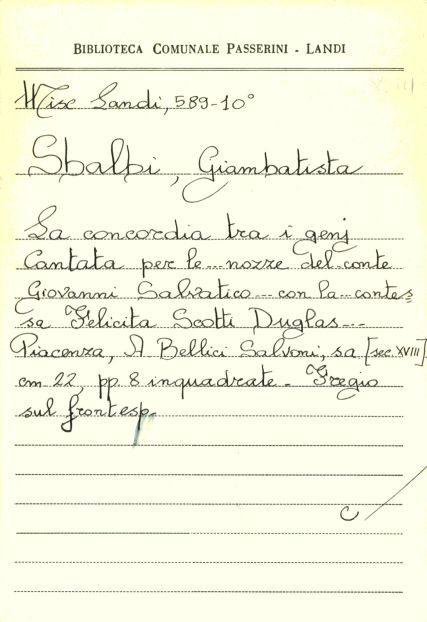 BIBLIOTECA COMUNALE PASSERINI - LANDI
Misc Landi, 589-10°
Sbalbi, Giambatista
La concordia tra i genj
Cantata per le ... nozze del conte
Giovanni Salvatico ... con la contes=
sa Felicita Scotti Duglas ...
Piacenza, A Bellici Salvoni, sa [sec. XVIII]
cm 22, pp. 8 inquadrate. Fregio
sul frontesp.
C